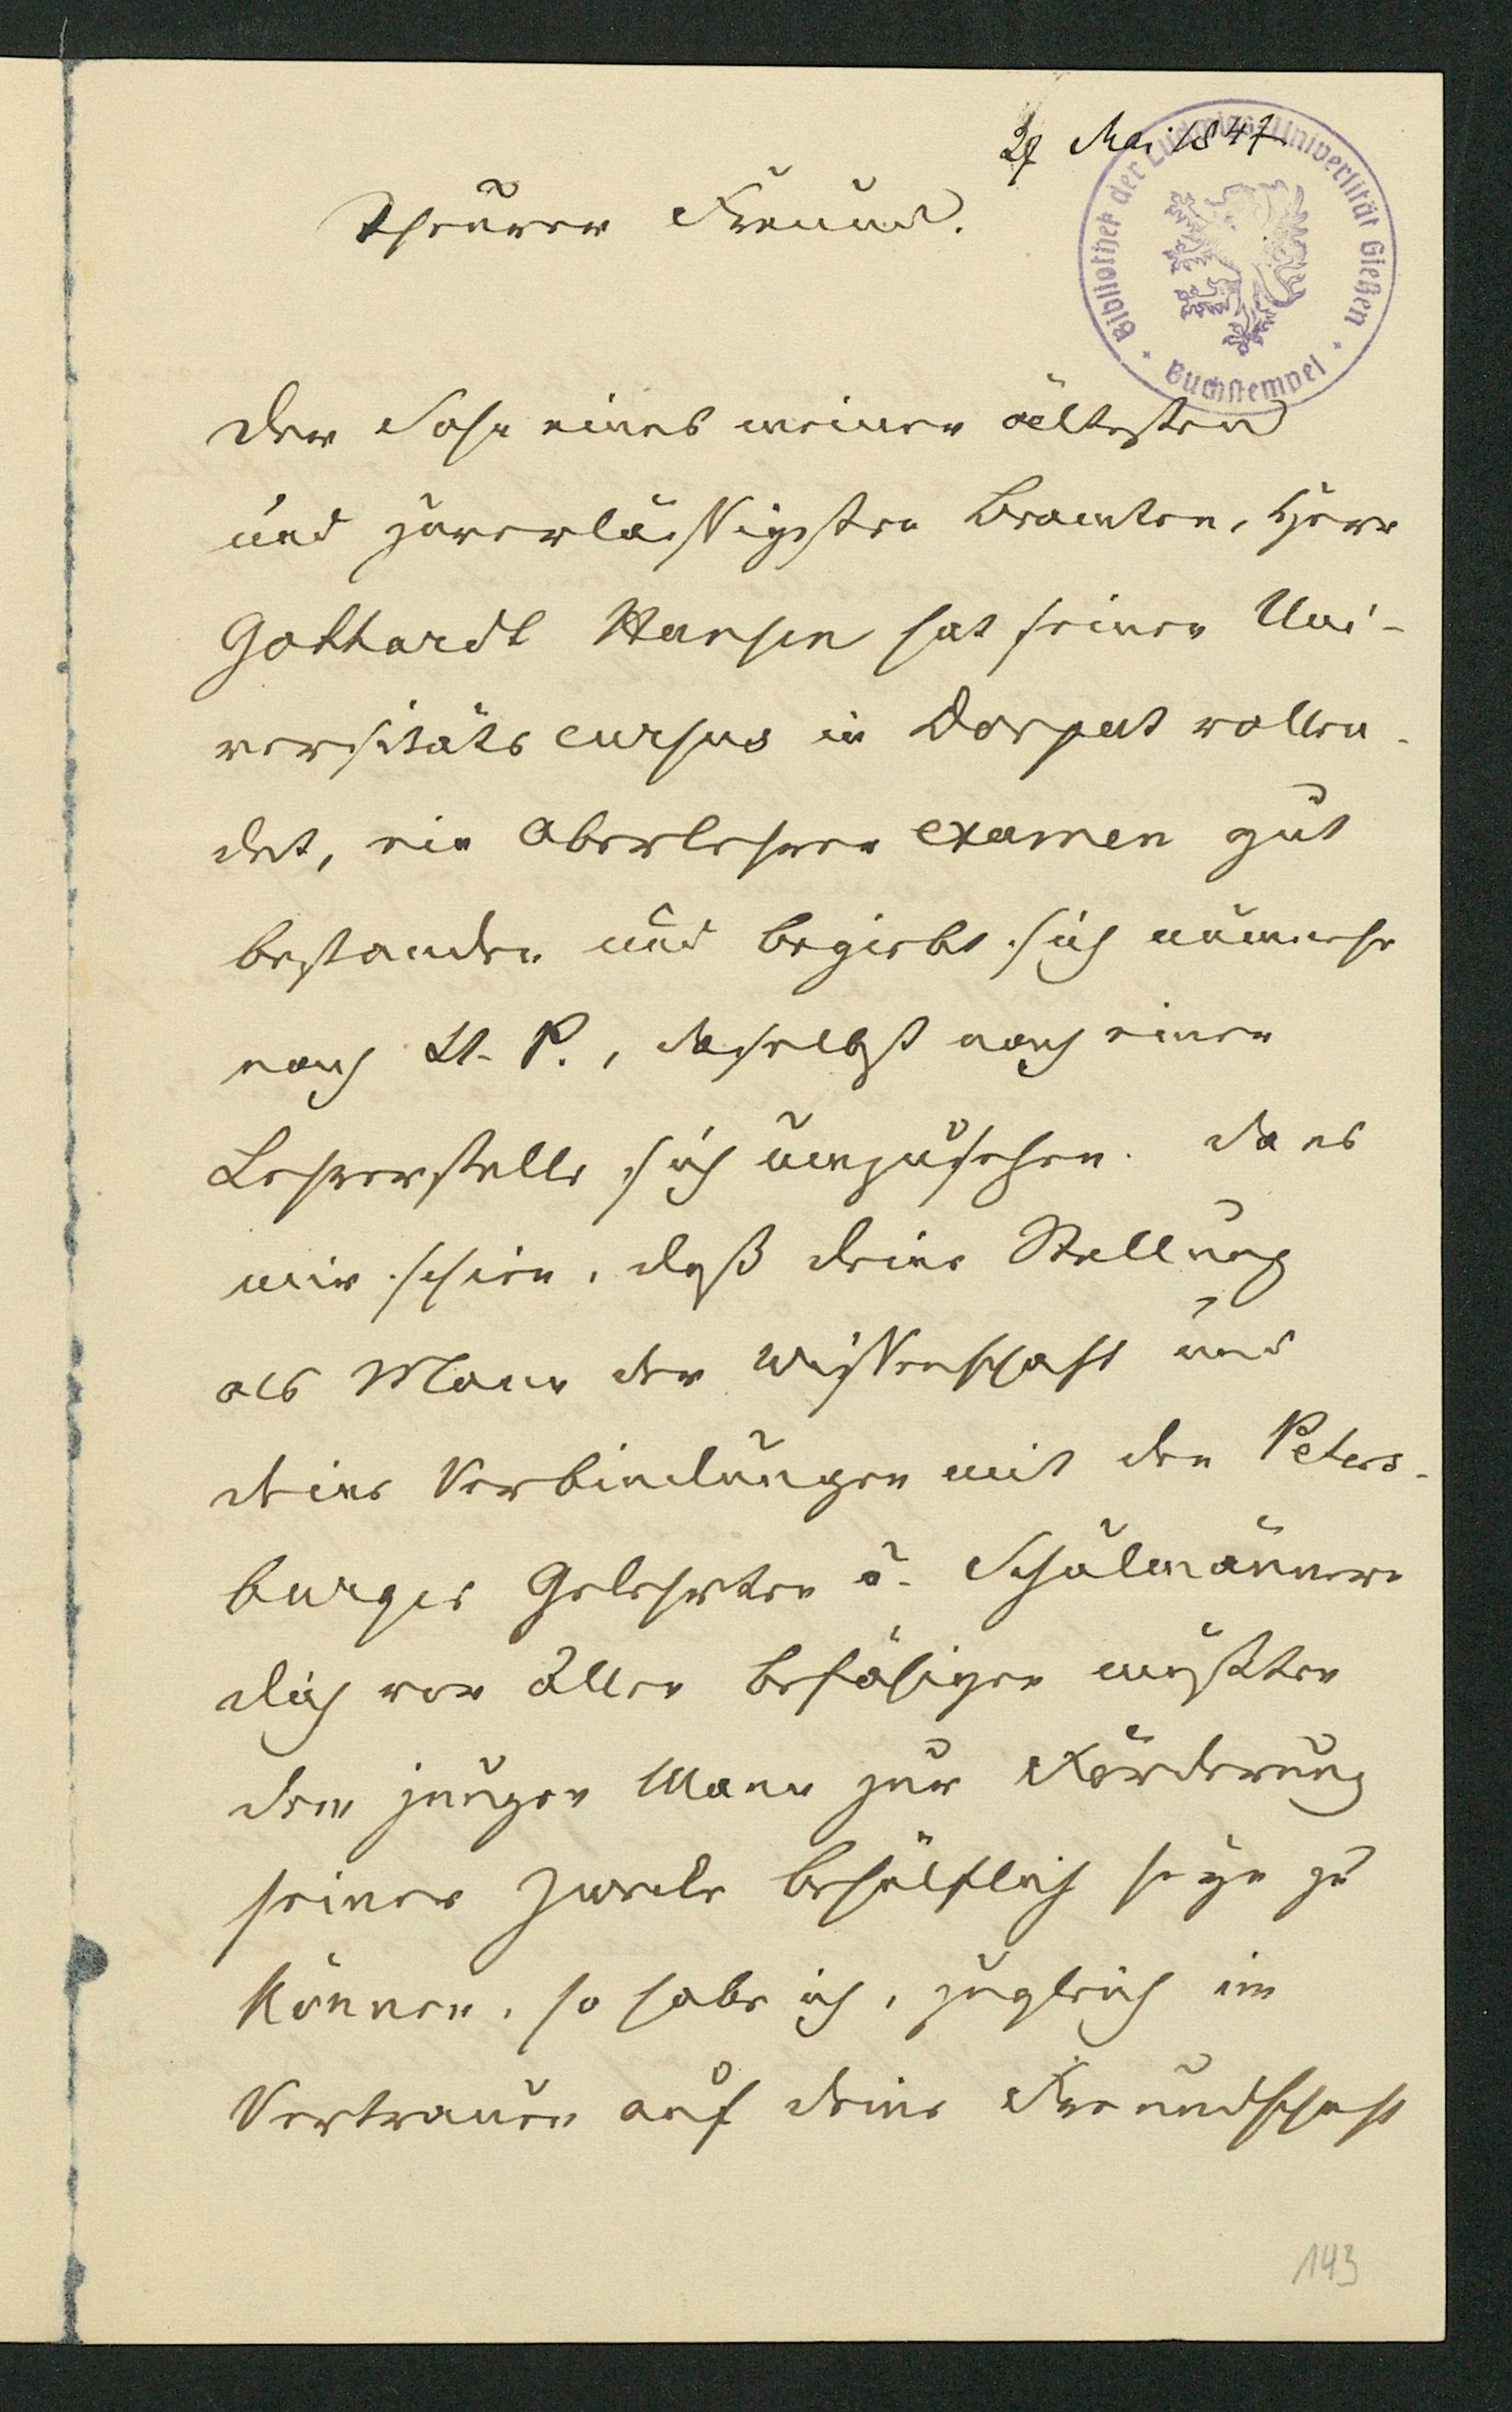 27 Mai 1847
Bibliothek der Ludwigs-Universität Gießen
Buchstempel
Theurer Freund.
Der Sohn eines meiner ältesten
und zuverlässigsten Beamten, Herr
Gotthardt Hansen hat seinen Uni-
versitäts cursus in Dorpat vollen-
det, ein Oberlehrer examen gut
bestanden und begiebt sich nunmehr
nach St. P., daselbst nach einer
Lehrerstelle sich umzusehen. Da es
mir schien, daß deine Stellung
als Mann der Wissenschaft und
deine Verbindungen mit den Peters-
burger Gelehrten u. Schulmännern
dich vor Allen befähigen müßten
dem jungen Mann zur Förderung
seiner Zwecke behülflich seyn zu
können, so habe ich, zugleich im
Vertrauen auf deine Freundschaft
143